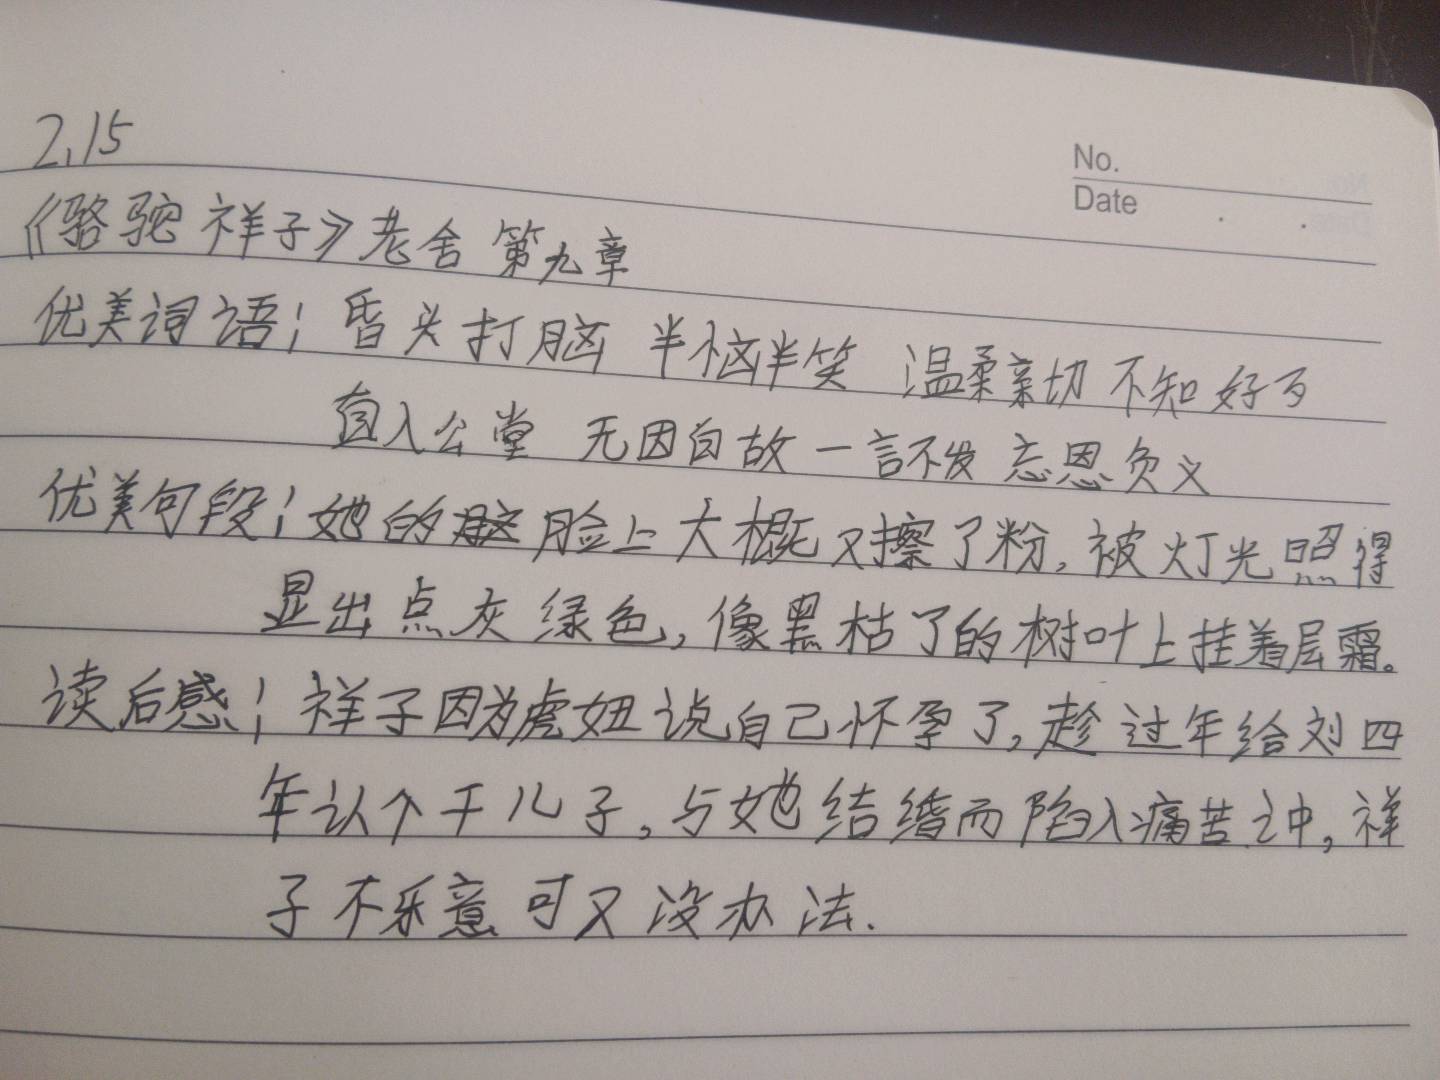 2.15
No.
Date
《骆驼祥子》老舍 第九章
优美词语: 昏头打脑 半恼半笑 温柔亲切 不知好歹
直入公堂 无因白故 一言不发 忘恩负义
优美句段: 她的脸上大概又擦了粉,被灯光照得
显出点灰绿色,像黑枯了的树叶上挂着层霜。
读后感: 祥子因为虎妞说自己怀孕了,趁过年给刘四
年认个干儿子,与她结婚而陷入痛苦之中,祥
子不乐意可又没办法.